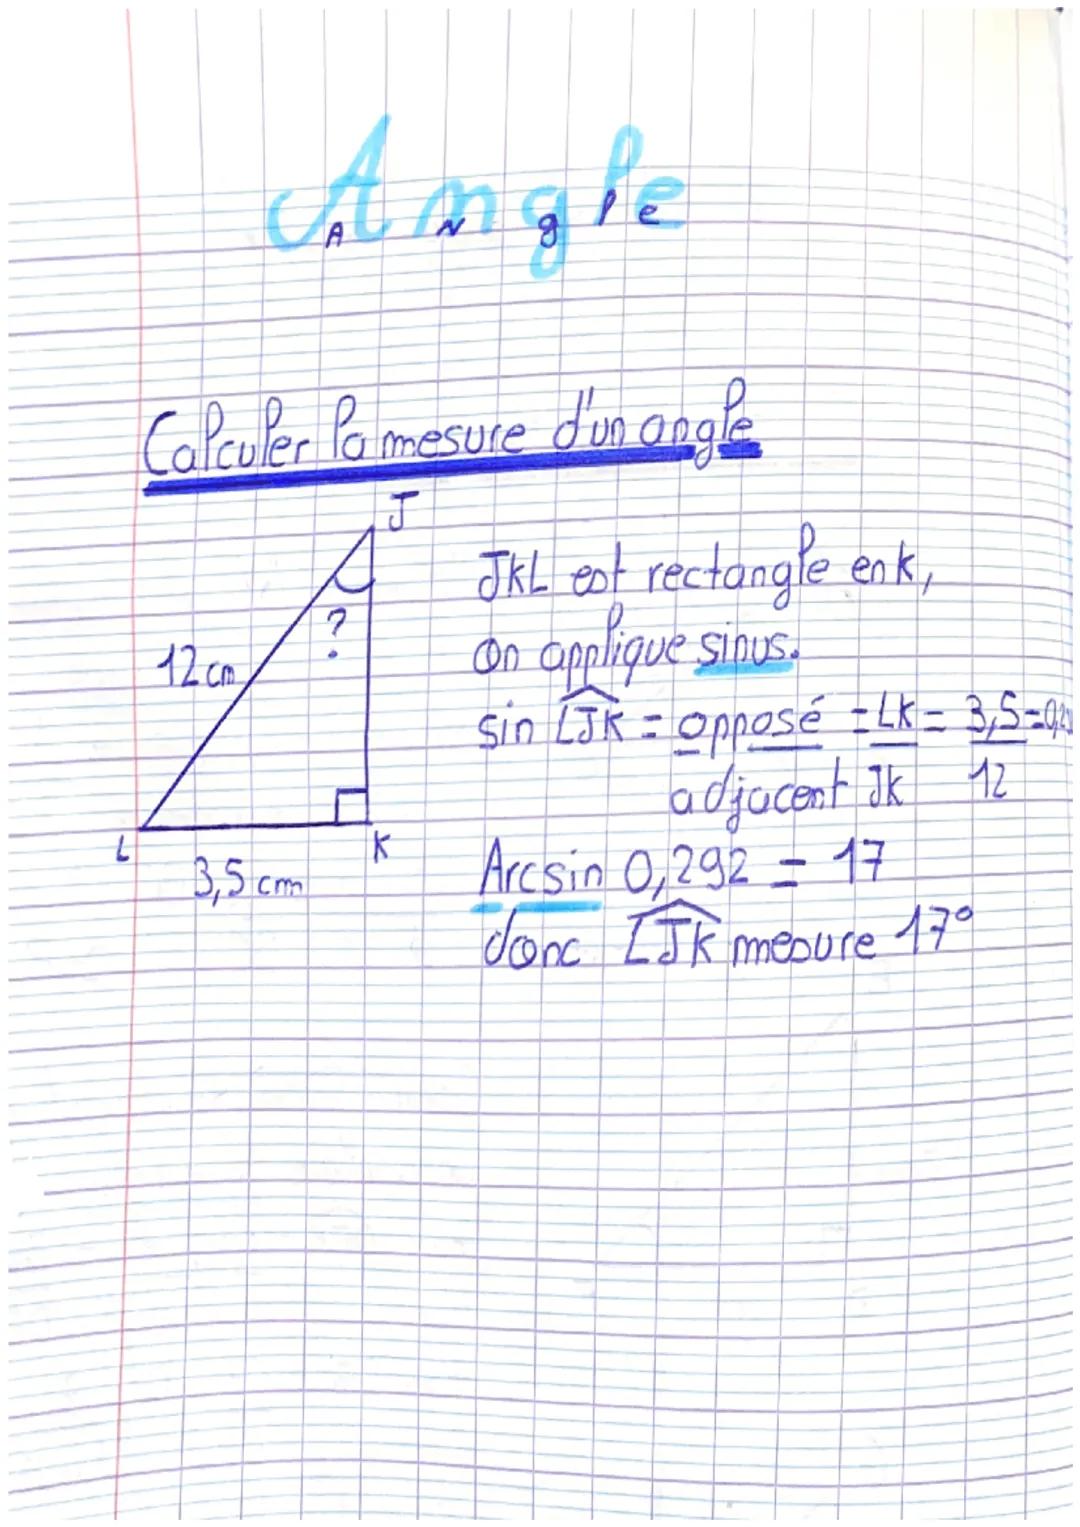 Angle
A N g l e
Calculer la mesure d'un angle
J
JKL est rectangle en k,
?
on applique sinus.
12 cm
sin LJK = opposé = LK = 3,5 =
adjacent Jk 12
L
K
3,5 cm
Arcsin 0,292 = 17
donc LJK mesure 17°